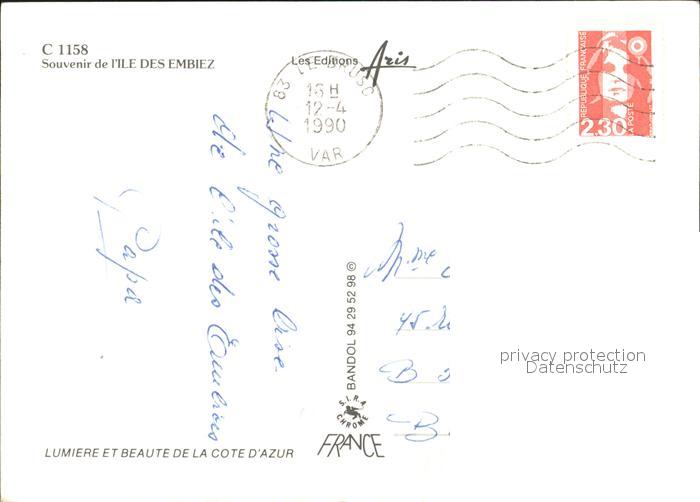 C 1158
Souvenir de l'ILE DES EMBIEZ
Les Editions Aris
83 LE BRUSC
16 H
12-4
1990
VAR
REPUBLIQUE FRANÇAISE
2,30
LA POSTE
Une grosse bise
de l'ile des Embiez
Papa
BANDOL 94 29 52 98 ©
S.I.R.A.
CHROME
FRANCE
LUMIERE ET BEAUTE DE LA COTE D'AZUR
Mme
45
B
B
privacy protection
Datenschutz